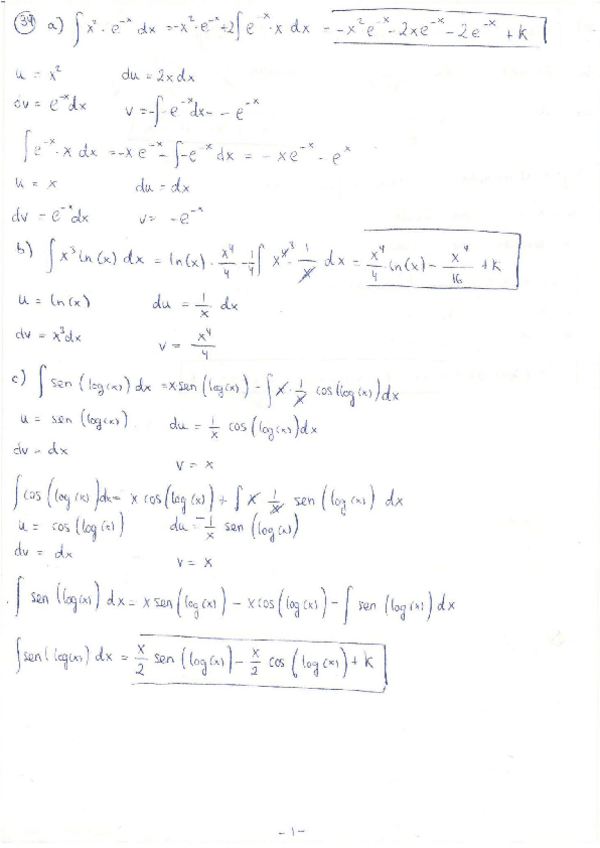 39 a) ∫ x² · e^(-x) dx = -x² · e^(-x) + 2∫ e^(-x) · x dx = -x² e^(-x) - 2x e^(-x) - 2e^(-x) + k
u = x² du = 2x dx
dv = e^(-x) dx v = -∫ -e^(-x) dx - - e^(-x)
∫ e^(-x) · x dx = -x e^(-x) - ∫ -e^(-x) dx = -x e^(-x) - e^x
u = x du = dx
dv = e^(-x) dx v = -e^(-x)
b) ∫ x³ ln(x) dx = ln(x) · x⁴/4 - 1/4 ∫ x⁴ ³ · 1/x dx = x⁴/4 · ln(x) - x⁴/16 + k
u = ln(x) du = 1/x dx
dv = x³ dx v = x⁴/4
c) ∫ sen (log(x)) dx = x sen (log(x)) - ∫ x · 1/x cos (log(x)) dx
u = sen (log(x)) du = 1/x cos (log(x)) dx
dv = dx v = x
∫ cos (log(x)) dx = x cos (log(x)) + ∫ x 1/x sen (log(x)) dx
u = cos (log(x)) du = -1/x sen (log(x))
dv = dx v = x
∫ sen (log(x)) dx = x sen (log(x)) - x cos (log(x)) - ∫ sen (log(x)) dx
∫ sen (log(x)) dx = x/2 sen (log(x)) - x/2 cos (log(x)) + k
- 1 -